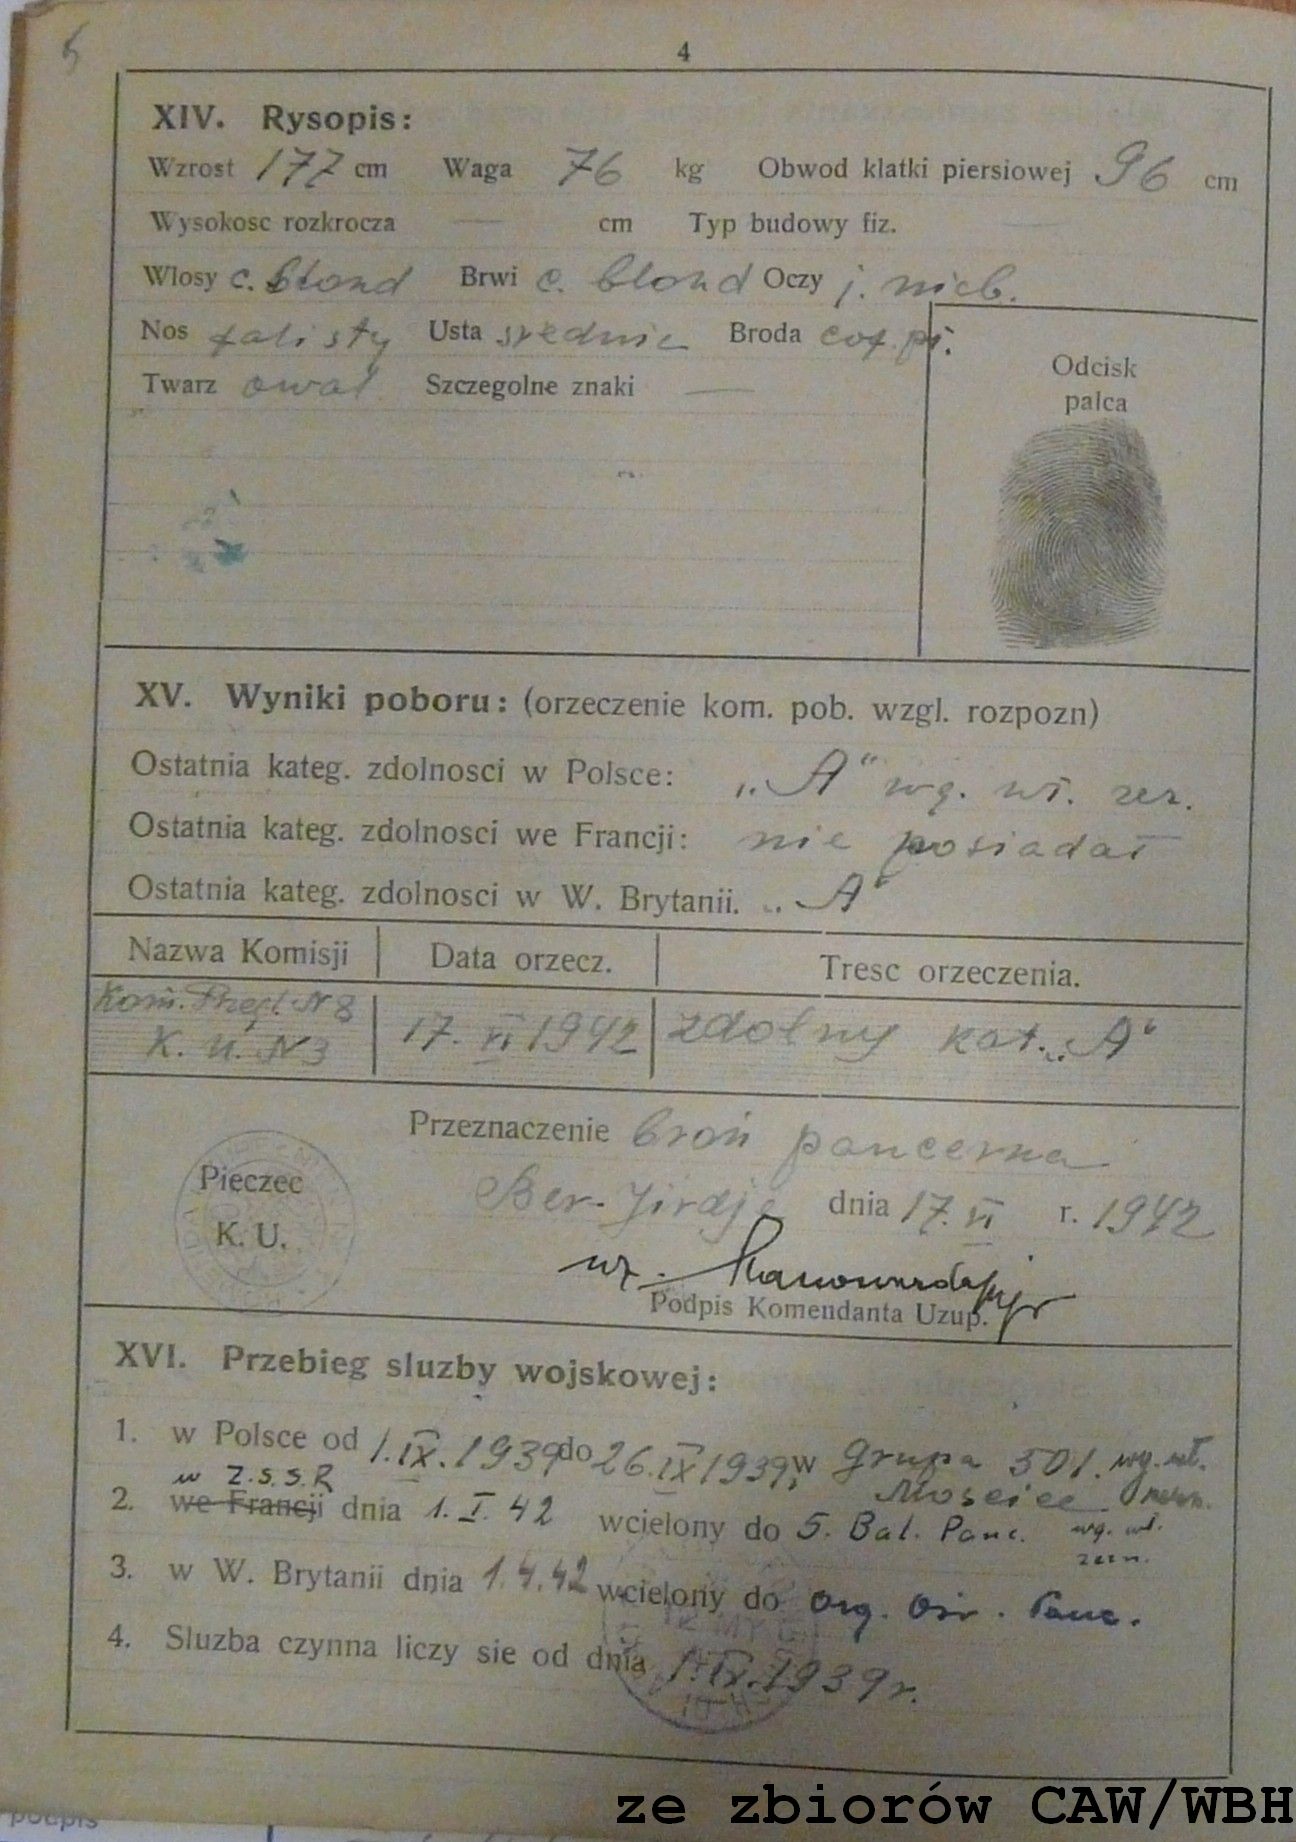 4
XIV. Rysopis:
Wzrost 177 cm Waga 76 kg Obwod klatki piersiowej 96 cm
Wysokosc rozkrocza — cm Typ budowy fiz. —
Wlosy c. blond Brwi c. blond Oczy j. nieb.
Nos falisty Usta średnie Broda cof. pi.
Twarz owal Szczegolne znaki —
Odcisk
palca
XV. Wyniki poboru: (orzeczenie kom. pob. wzgl. rozpozn)
Ostatnia kateg. zdolnosci w Polsce: „A" wg. wł. zez.
Ostatnia kateg. zdolnosci we Francji: nie posiadał
Ostatnia kateg. zdolnosci w W. Brytanii. „A"
Nazwa Komisji Data orzecz. Tresc orzeczenia.
Kom. Przegl. N 8
K. U. N 3 17. VI 1942 zdolny kat. „A"
Przeznaczenie broń pancerna
Pieczec
K. U.
dnia 17. VI r. 1942
wz.
Podpis Komendanta Uzup.
XVI. Przebieg sluzby wojskowej:
1. w Polsce od 1.IX.1939 do 26.IX 1939, w Grupa 501. wg. wł.
Mościce zezn.
w Z.S.S.R
2. we Francji dnia 1. I. 42 wcielony do 5. Bat. Panc. wg. wł.
zezn.
3. w W. Brytanii dnia 1.4.42 wcielony do Org. Ośr. Panc.
4. Sluzba czynna liczy sie od dnia 1.IX.1939 r.
podpis
ze zbiorów CAW/WBH